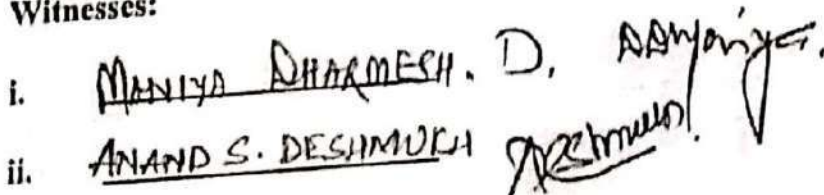 Witnesses:
i. MANIYA DHARMESH. D.
ii. ANAND S. DESHMUKH Deshmukh